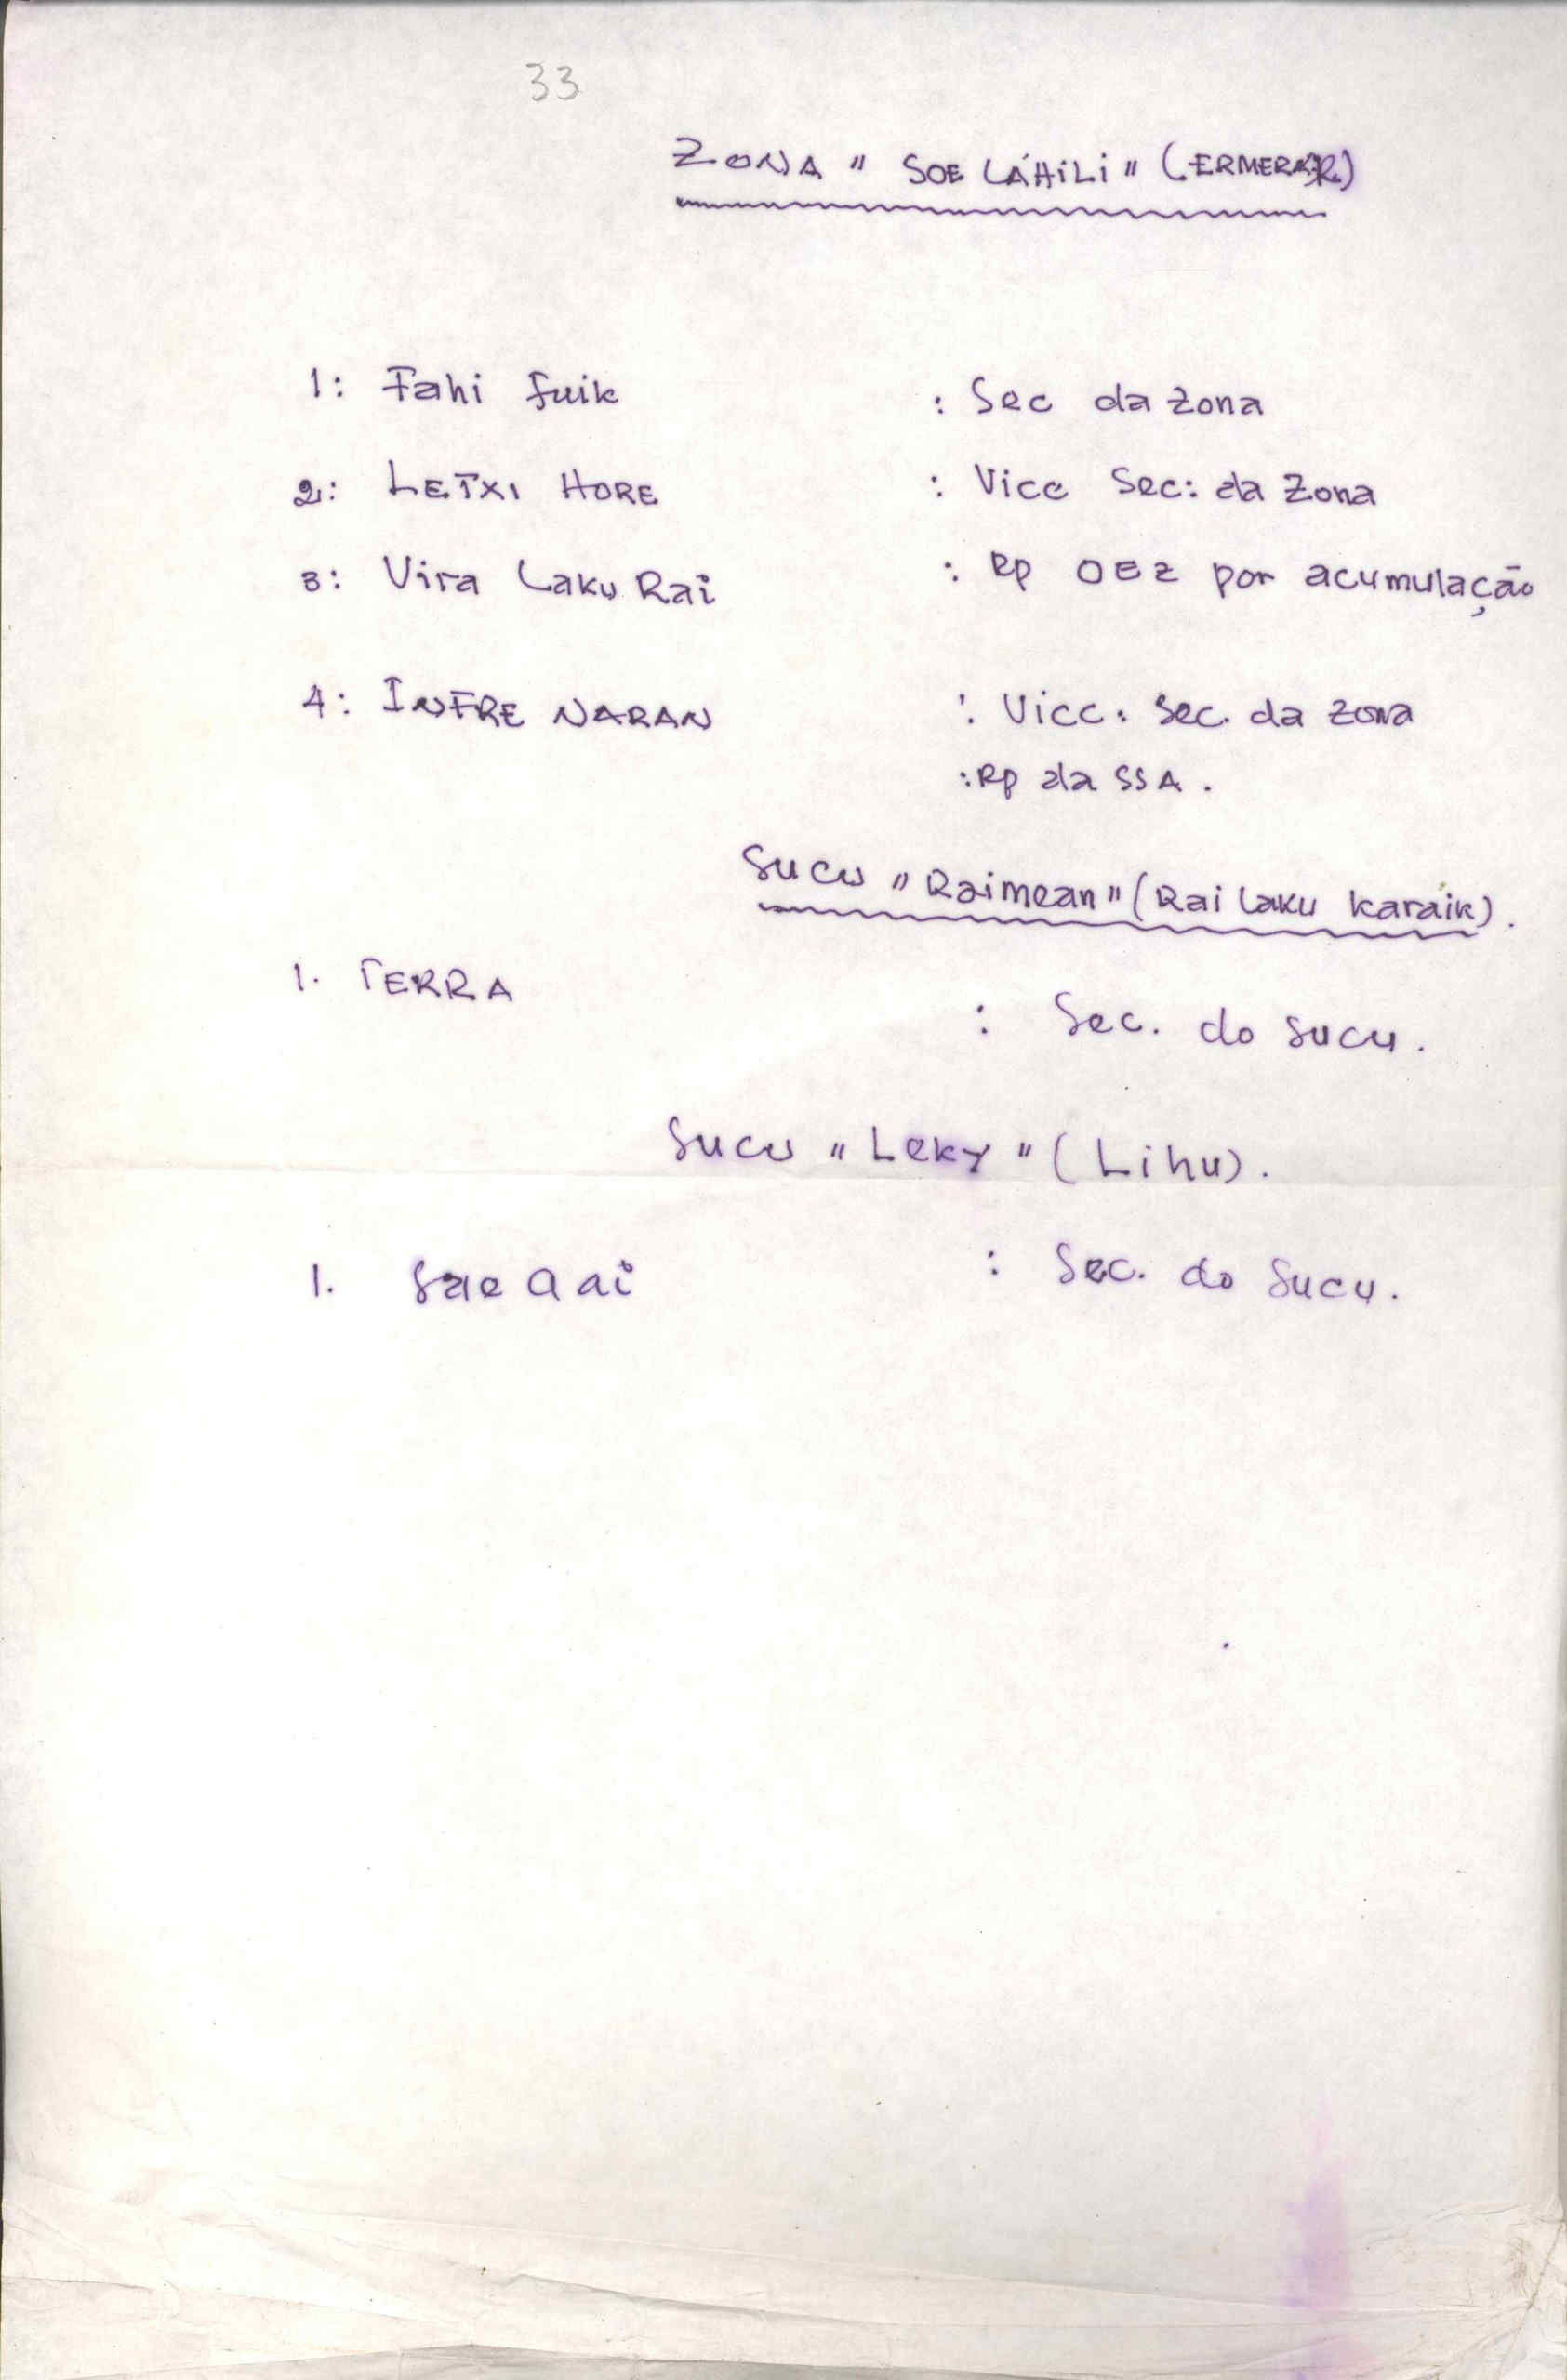 33
ZONA "SOE LÁHILI" (ERMERA R)
1: Fahi fuik : Sec da Zona
2: LETXI HORE : Vice Sec: da Zona
3: Vira Laku Rai : Rp OEZ por acumulação
4: INFRE NARAN : Vice: Sec. da Zona
: Rp da SSA.
Sucu "Raimean" (Rai Laku karaik).
1. TERRA : Sec. do sucu.
Sucu "Leky" (Lihu).
1. Sae a ai : Sec. do Sucu.